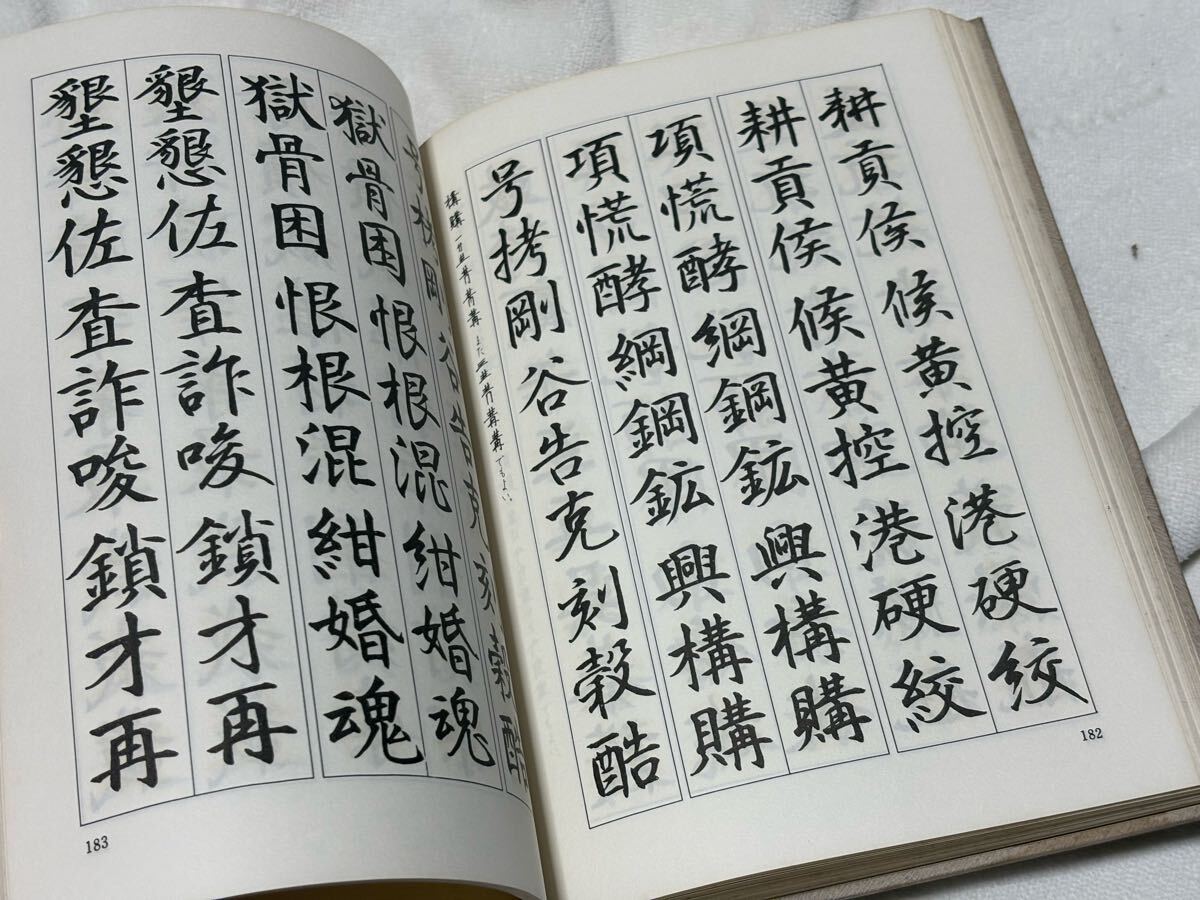 耕貢侯候黄控港硬絞
耕貢侯候黄控港硬絞
項慌酵綱鋼鉱興構購
項慌酵綱鋼鉱興構購
号拷剛谷告克刻穀酷
構購 また でもよい。
182
谷告克刻穀酷
獄骨困恨根混紺婚魂
獄骨困恨根混紺婚魂
墾懇佐査詐唆鎖才再
墾懇佐査詐唆鎖才再
183